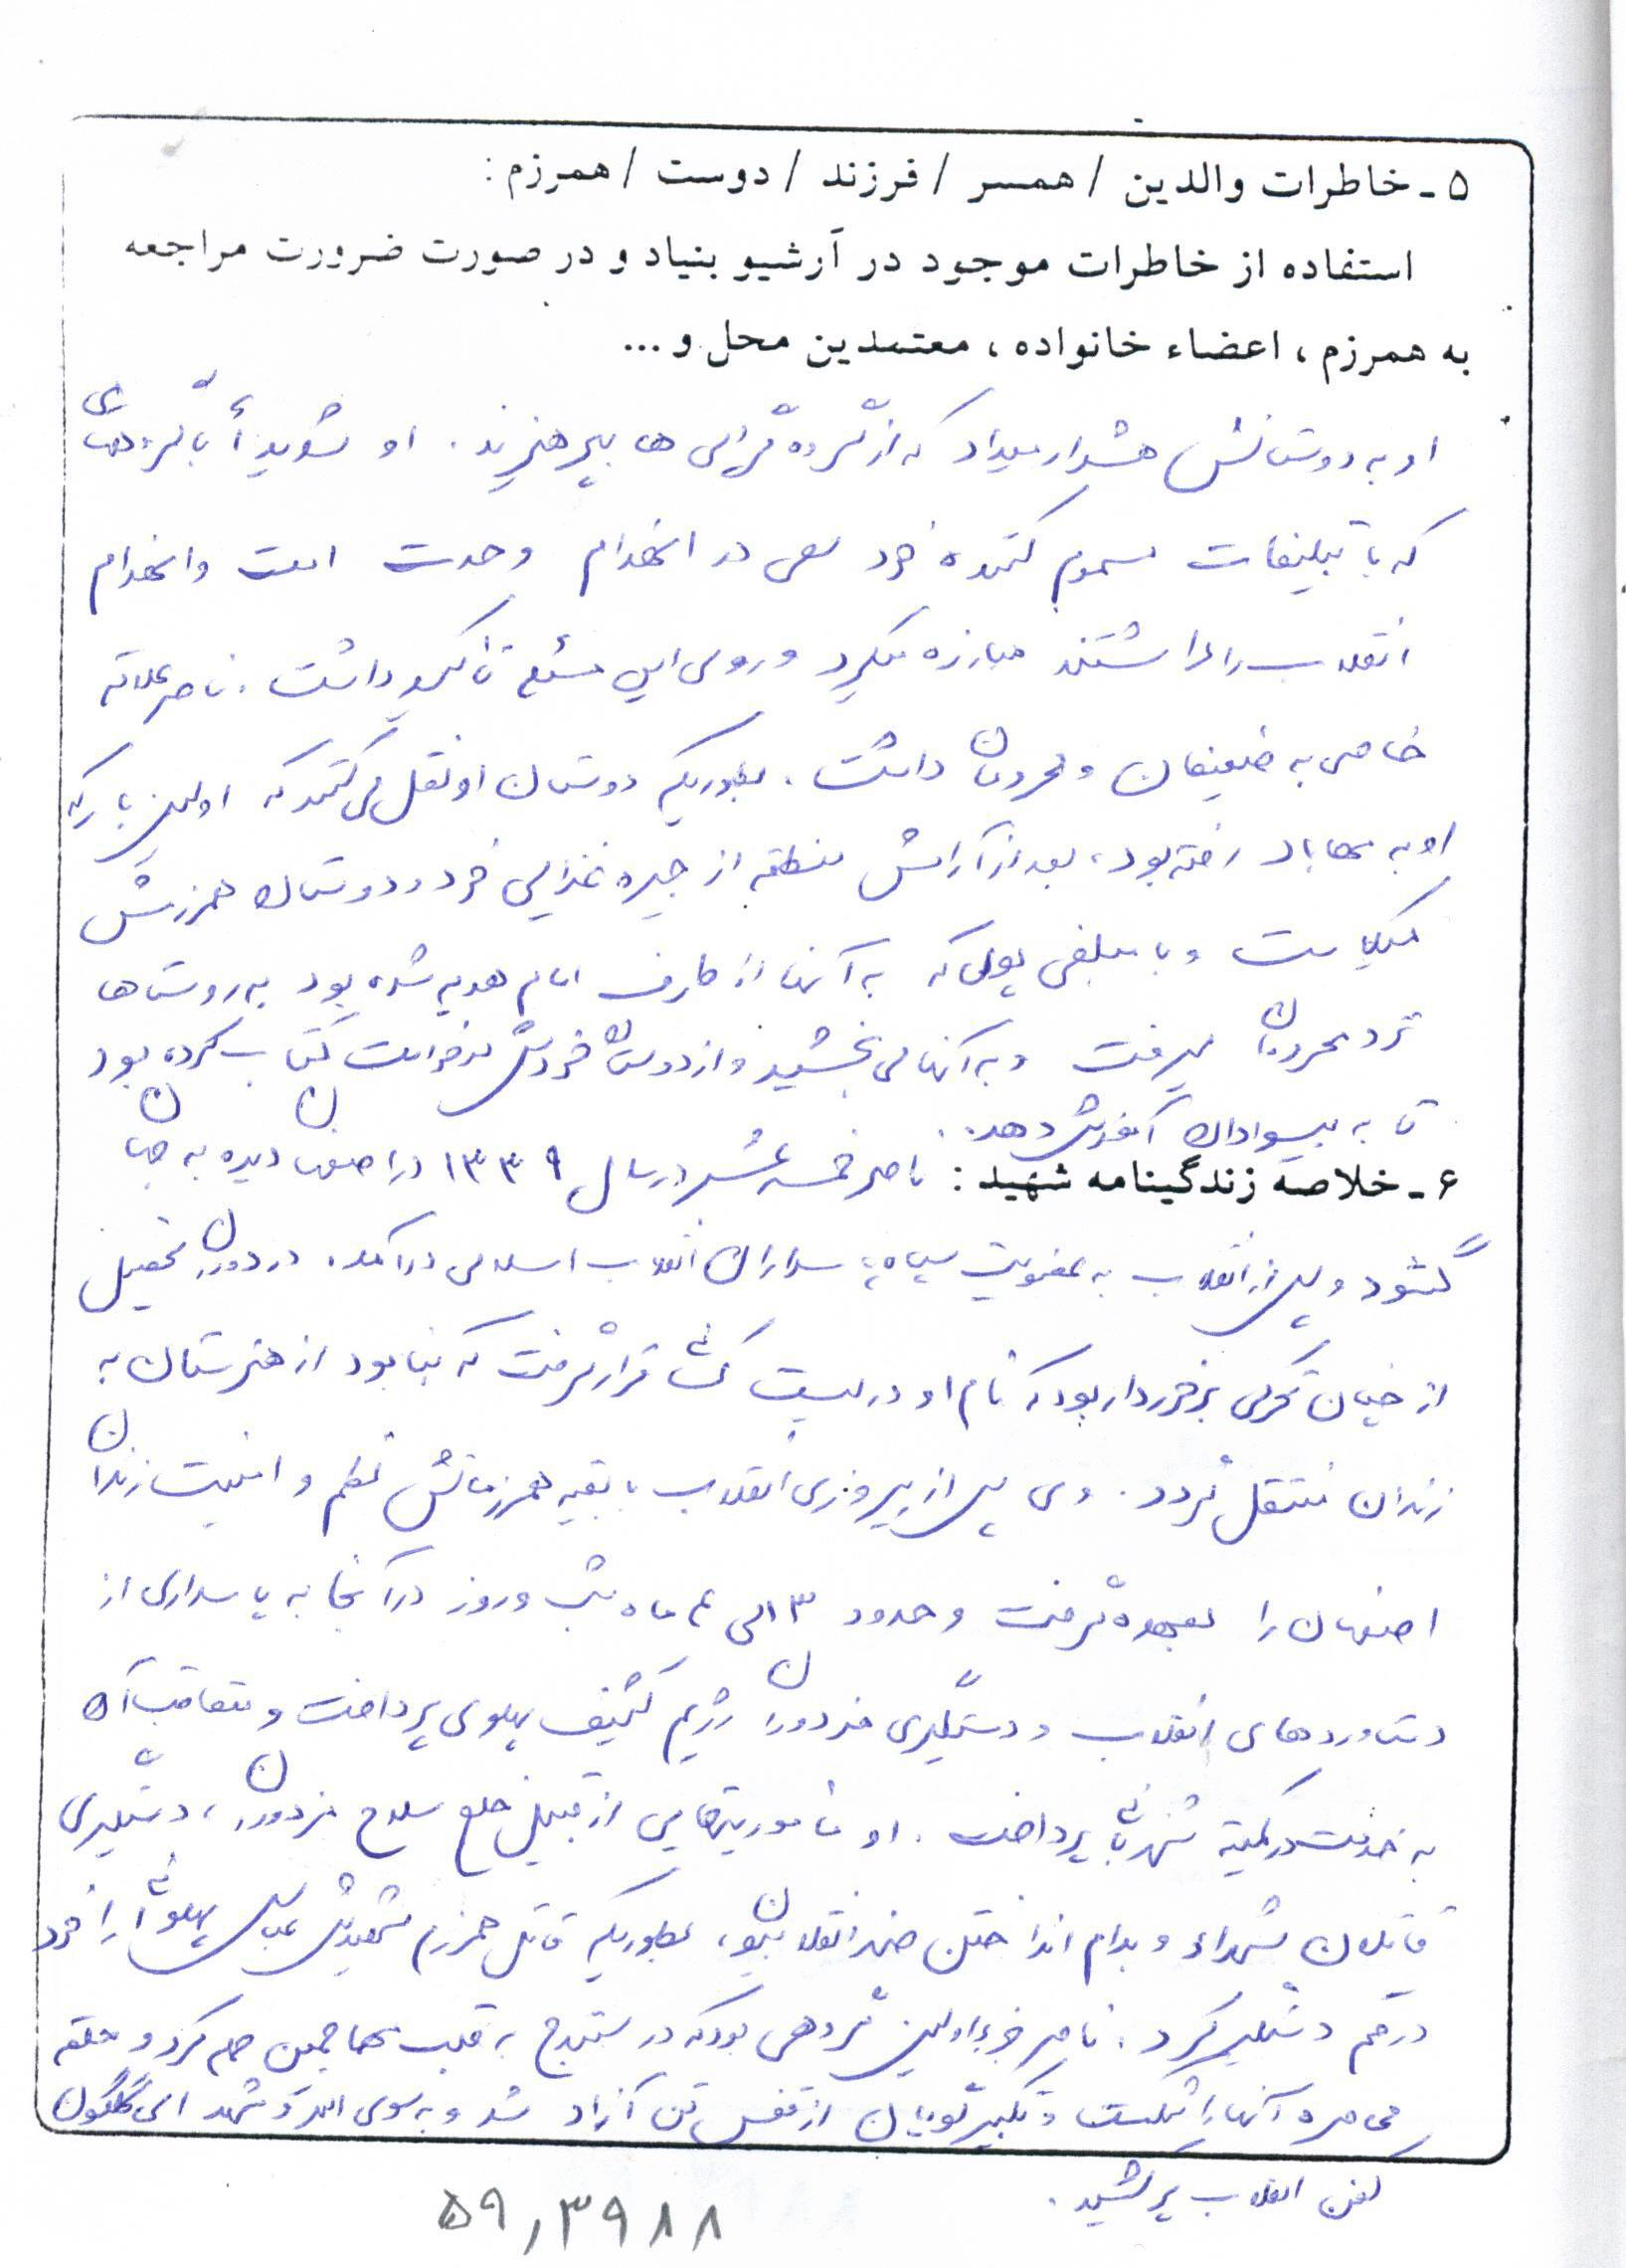 ۵ ـ خاطرات والدین / همسر / فرزند / دوست / همرزم :
استفاده از خاطرات موجود در آرشیو بنیاد و در صورت ضرورت مراجعه
به همرزم ، اعضاء خانواده ، معتمدین محل و ...
او به دوستانش هشدار میداد که از گروه گرایی ها بپرهیزید . او شدیداً با گروههای
که با تبلیغات مسموم کننده خود سعی در انهدام وحدت امت و انهدام
انقلاب را داشتند مبارزه میکرد و روی این مسئله تأکید داشت . ناصر علاقه
خاصی به ضعیفان و محرومان داشت . بطوریکه دوستان او نقل می کنند که اولین باریکه
او به مهاباد رفته بود ، بعد از آرامش منطقه از جیره غذایی خود و دوستان همرزمش
میکاست و با مبلغی پولی که به آنها از طرف امام هدیه شده بود به روستاها
نزد محرومان میرفت و به آنها می بخشید و از دوستان خودش درخواست کتاب کرده بود
تا به بیسوادان آموزش دهد .
۶ ـ خلاصه زندگینامه شهید : ناصر خمسه عشر در سال ۱۳۳۹ در اصفهان دیده به جهان
گشود و پس از انقلاب به عضویت سپاه پاسداران انقلاب اسلامی درآمد . در دوران تحصیل
از چنان تحرکی برخوردار بود که نام او در لیست کسانی قرار گرفت که بنا بود از هنرستان به
زندان منتقل گردد . وی پس از پیروزی انقلاب با بقیه همرزمانش نظم و امنیت زندان
اصفهان را بعهده گرفت و حدود ۳ الی ۴ ماه شب و روز در آنجا به پاسداری از
دستاوردهای انقلاب و دستگیری مزدوران رژیم کثیف پهلوی پرداخت و متعاقب آن
به خدمت در کمیته شهربانی پرداخت . او مأموریتهایی از قبیل خلع سلاح مزدوران ، دستگیری
قاتلان شهداء و بدام انداختن ضد انقلابیون ، بطوریکه قاتل همرزم شهیدش عباس پهلوانی را خود
در قم دستگیر کرد . ناصر جزء اولین گروهی بود که در سنندج به قلب مهاجمین حمله کرد و حلقه
محاصره آنها را شکست و تکبیر گویان از قفس تن آزاد شد و به سوی الله و شهدای گلگون
کفن انقلاب پر کشید .
۵۹٫۳۹۸۸